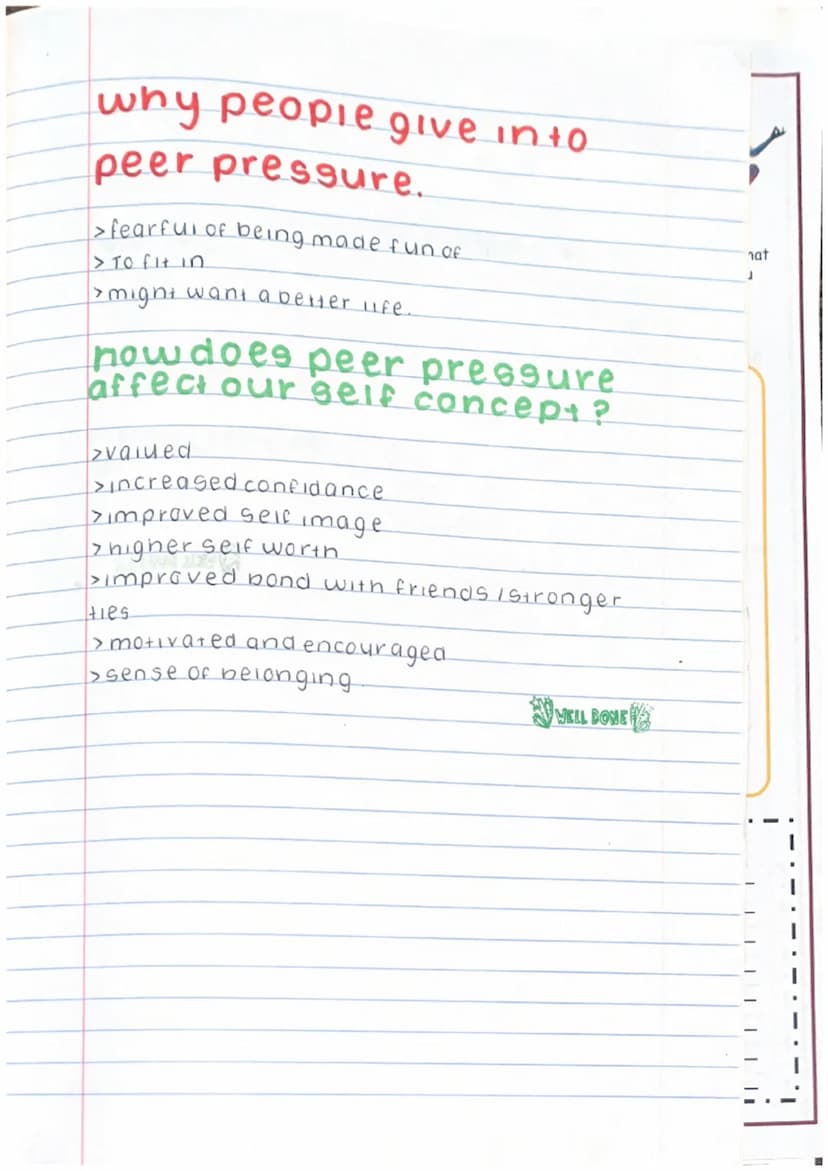 why people give into
peer pressure.
>fearful of being made fun of
> To fit in
>might want a better life.
how does peer pressure
affect our self concept?
>valued
>increased confidance
>improved self image
>higher self worth
>improved bond with friends / stronger
ties
>motivated and encouraged
>sense of belonging
WELL DONE
hat